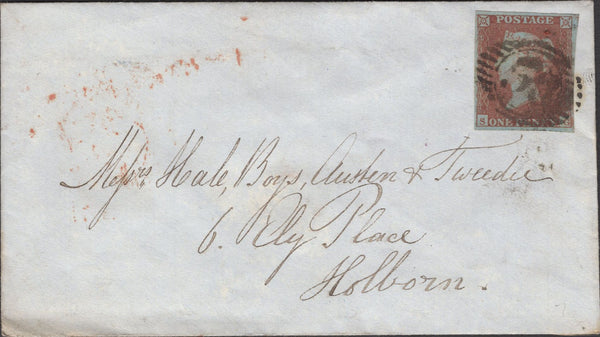 POSTAGE
S ONE PENNY
Messrs Hale, Boys, Austen & Tweedie
6. Ely Place
Holborn.